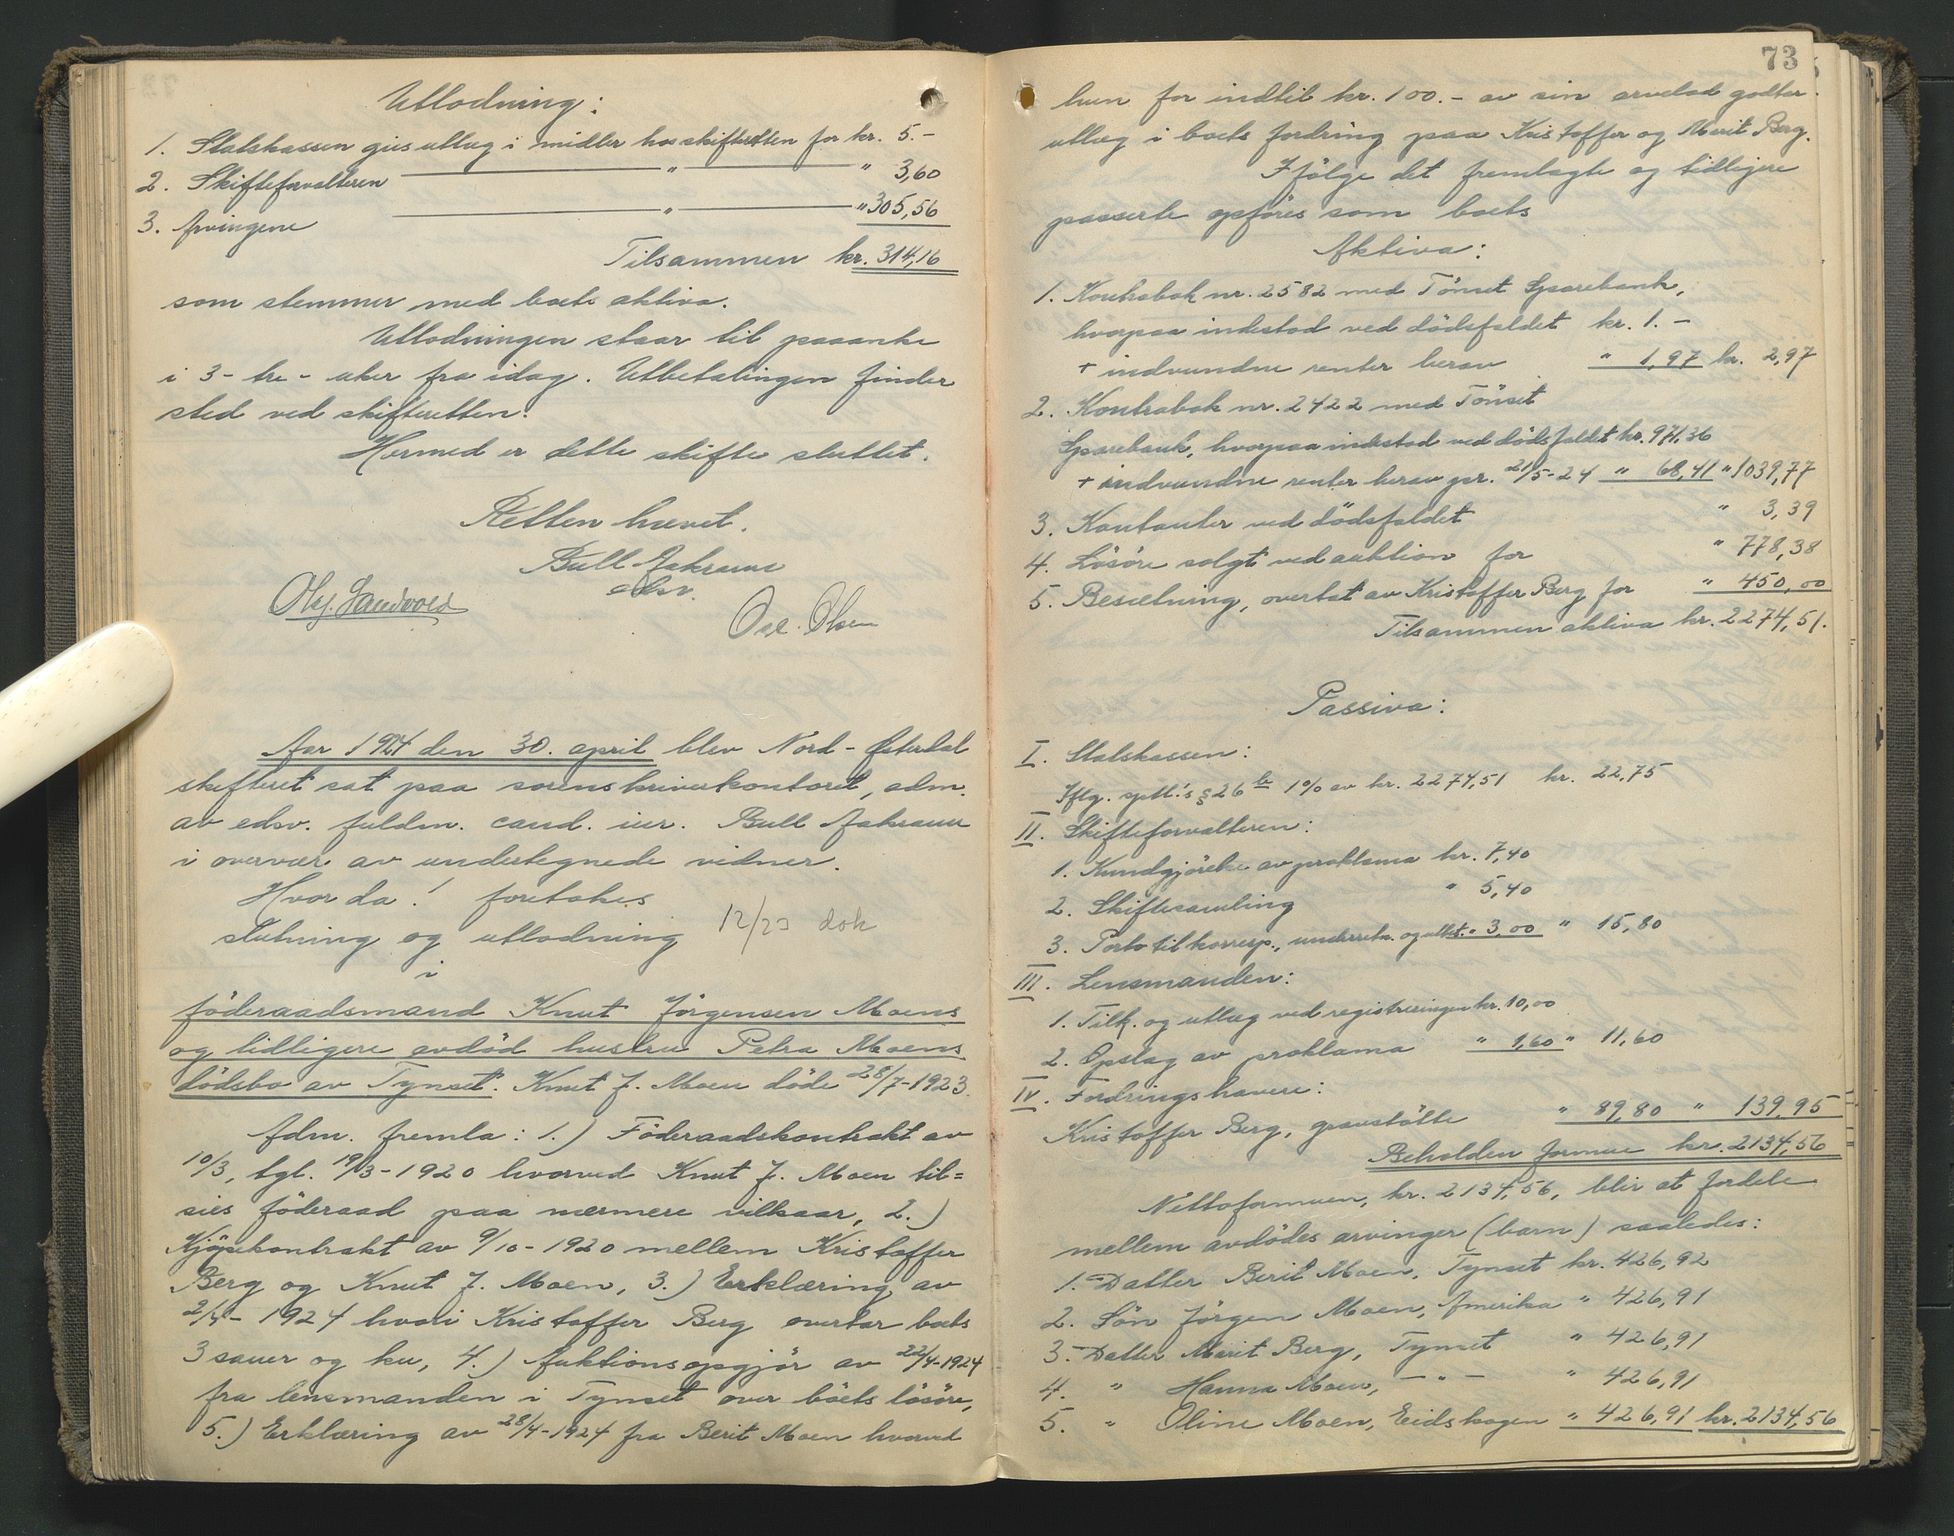 Utlodning:
1. Statskassen gies utlæg i midler hos skifteretten for kr. 5.-
2. Skifteforvalteren " " 3,60
3. Arvingene " " 305,56
Tilsammen kr. 314,16
som stemmer med boets aktiva.
Utlodningen staar til paaanke
i 3 - tre - uker fra idag. Utbetalingen finder
sted ved skifteretten.
Hermed er dette skifte sluttet.
Retten hævet.
Bull
edsv.
Olsen
Aar 1924 den 30. april blev Nord-Østerdal
skifteret sat paa sorenskriverkontoret, adm.
av edsv. fuldm. cand. jur. Bull
i overvær av undertegnede vidner.
Hvor da! foretokes
slutning og utlodning 12/23 dok
i
föderaadsmand Knut Jörgensen Moens
og tidligere avdöd hustru Petra Moens
dödsbo av Tynset. Knut J. Moen döde 28/7-1923.
Adm. fremla: 1.) Föderaadskontrakt av
10/3, tgl. 19/3-1920 hvorved Knut J. Moen til=
sies föderaad paa nærmere vilkaar, 2.)
Kjöpekontrakt av 9/10-1920 mellem Kristoffer
Berg og Knut J. Moen, 3.) Erklæring av
2/4-1924 hvori Kristoffer Berg overtar boets
3 sauer og ku, 4.) Auktionsopgjör av 22/4-1924
fra lensmanden i Tynset over boets lösöre,
5.) Erklæring av 28/4-1924 fra Berit Moen hvorved
73
hun for indtil kr. 100.- av sin arvelod godtar
utlæg i boets fordring paa Kristoffer og Marit Berg.
Ifölge det fremlagte og tidligere
passerte opföres som boets
Aktiva:
1. Kontrabok nr. 2582 med Tönset Sparebank,
hvorpaa indestod ved dödsfaldet kr. 1.-
+ indvundne renter herav " 1,97 kr. 2,97
2. Kontrabok nr. 2422 med Tönset
Sparebank, hvorpaa indestod ved dödsfaldet kr. 971,36
+ indvundne renter herav pr. 21/5-24 " 68,41 " 1039,77
3. Kontanter ved dödsfaldet " 3,39
4. Lösöre solgt ved auktion for " 778,38
5. Besætning, overtat av Kristoffer Berg for " 450,00
Tilsammen aktiva kr. 2274,51.
Passiva:
I. Statskassen:
Iflg. sptl.'s § 26 1% av kr. 2274,51 kr. 22,75
II. Skifteforvalteren:
1. Kundgjörelse av proklama kr. 7,40
2. Skiftesamling " 5,40
3. Porto til korresp., underretn. og utbet. " 3,00 " 15,80
III. Lensmanden:
1. Tilk. og utlæg ved registreringen kr. 10,00
2. Opslag av proklama " 1,60 " 11,60
IV. Fordringshavere:
Kristoffer Berg, gravstötte " 89,80 " 139,95
Beholden formue kr. 2134,56
Nettoformuen, kr. 2134,56, blir at fordele
mellem avdödes arvinger (barn) saaledes:
1. Datter Berit Moen, Tynset kr. 426,92
2. Sön Jörgen Moen, Amerika " 426,91
3. Datter Marit Berg, Tynset " 426,91
4. " Hanna Moen, - " - " 426,91
5. " Oline Moen, Eidskogen " 426,91 kr. 2134,56